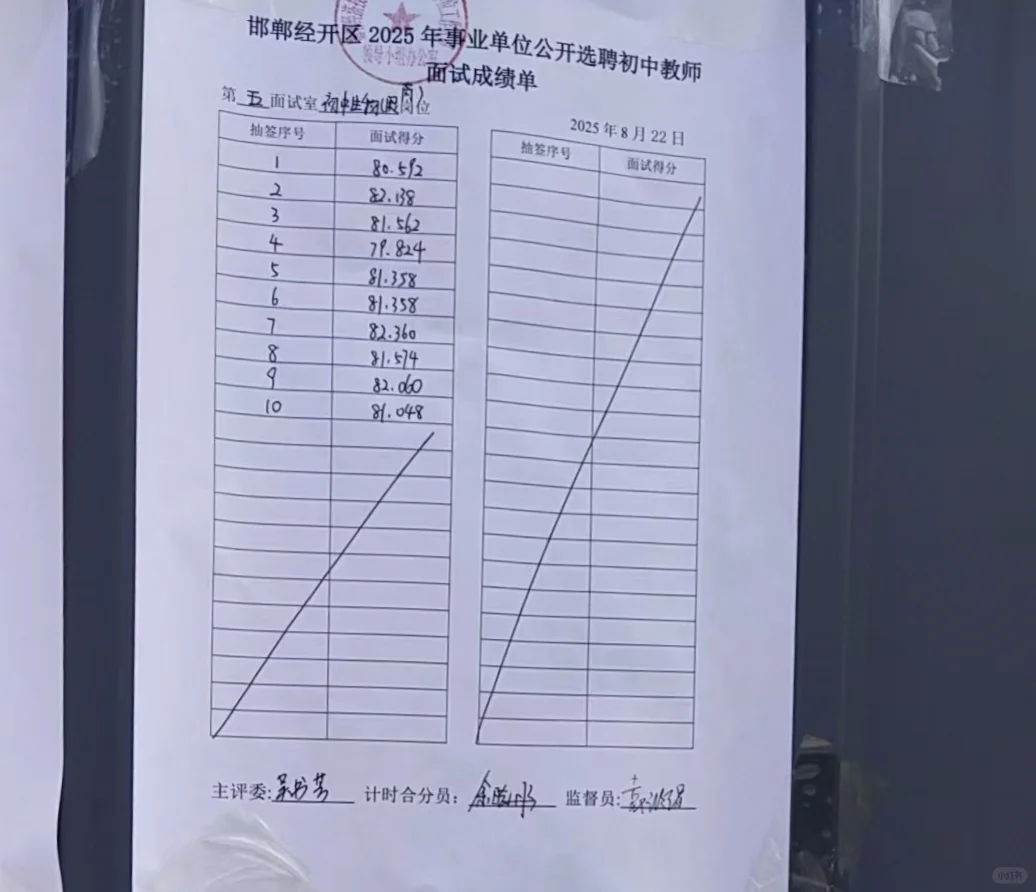 邯郸经开区 2025 年事业单位公开选聘初中教师
面试成绩单
领导小组办公室
第 五 面试室 初中生物 岗位
2025 年 8 月 22 日
抽签序号 面试得分
1 80.592
2 82.138
3 81.562
4 79.824
5 81.358
6 81.358
7 82.360
8 81.574
9 82.060
10 81.048
抽签序号 面试得分
主评委: 计时合分员： 监督员:
小红书